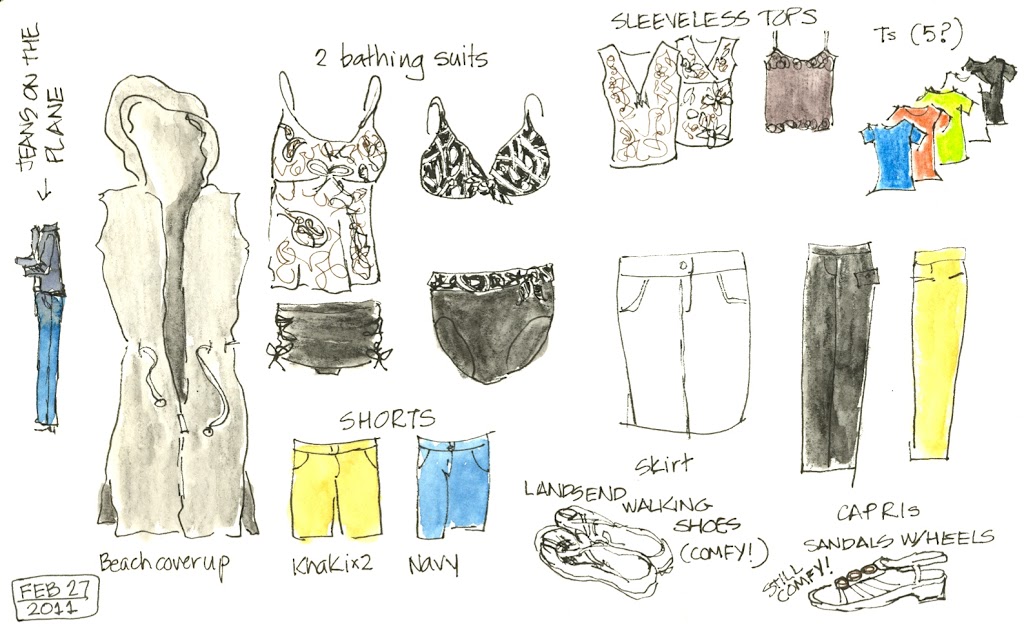 JEANS ON THE
PLANE
2 bathing suits
SLEEVELESS TOPS
Ts (5?)
SHORTS
Beach cover up
Khaki x2
Navy
Skirt
CAPRIs
LANDSEND WALKING
SHOES
(COMFY!)
SANDALS W/HEELS
STILL
COMFY!
FEB 27
2011